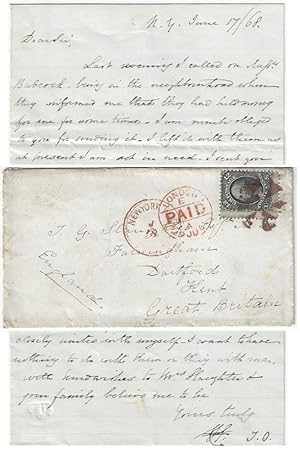 N.Y. June 17/68.
Dear Sir,
Last evening I called on Messrs
Babcock, being in the neighbourhood when
they informed me that they had held money
for me for some time. I am much obliged
to you for sending it. I left it with them as
at present I am not in need. I sent you
NEW YORK
LONDON
E
PAID
T. G.
Farningham
Dartford
Kent
Great Britain
England
closely united with myself. I want to have
nothing to do with them or they with me.
with kind wishes to Mrs Slaughter &
your family believe me to be
Yours truly
J.O.